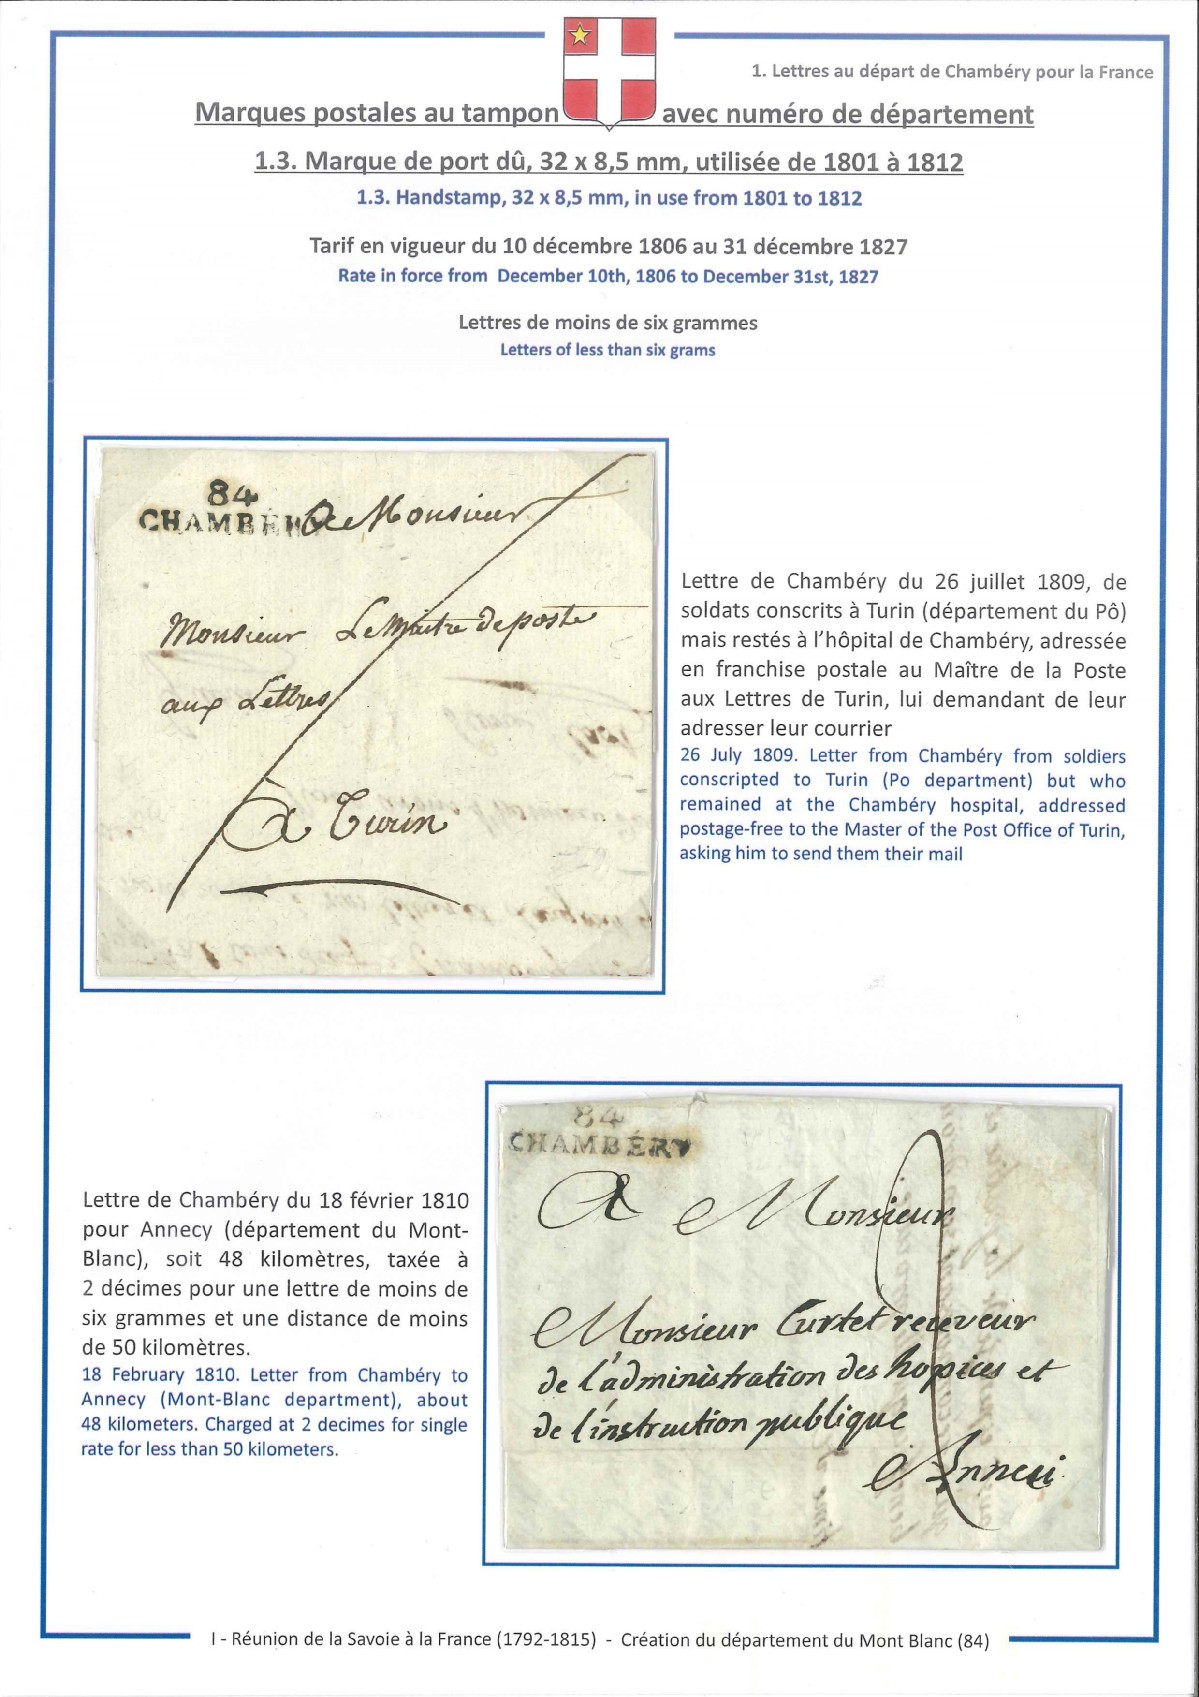 1. Lettres au départ de Chambéry pour la France
Marques postales au tampon avec numéro de département
1.3. Marque de port dû, 32 x 8,5 mm, utilisée de 1801 à 1812
1.3. Handstamp, 32 x 8,5 mm, in use from 1801 to 1812
Tarif en vigueur du 10 décembre 1806 au 31 décembre 1827
Rate in force from December 10th, 1806 to December 31st, 1827
Lettres de moins de six grammes
Letters of less than six grams
84
CHAMBÉRY
A Monsieur
Monsieur Le Maitre de poste
aux Lettres
À Turin
Lettre de Chambéry du 26 juillet 1809, de
soldats conscrits à Turin (département du Pô)
mais restés à l'hôpital de Chambéry, adressée
en franchise postale au Maître de la Poste
aux Lettres de Turin, lui demandant de leur
adresser leur courrier
26 July 1809. Letter from Chambéry from soldiers
conscripted to Turin (Po department) but who
remained at the Chambéry hospital, addressed
postage-free to the Master of the Post Office of Turin,
asking him to send them their mail
84
CHAMBÉRY
A Monsieur
Monsieur Curtet receveur
de l'administration des hopices et
de l'instruction publique
Anneci
Lettre de Chambéry du 18 février 1810
pour Annecy (département du Mont-
Blanc), soit 48 kilomètres, taxée à
2 décimes pour une lettre de moins de
six grammes et une distance de moins
de 50 kilomètres.
18 February 1810. Letter from Chambéry to
Annecy (Mont-Blanc department), about
48 kilometers. Charged at 2 decimes for single
rate for less than 50 kilometers.
I - Réunion de la Savoie à la France (1792-1815) - Création du département du Mont Blanc (84)